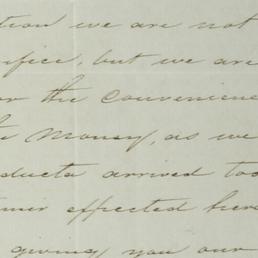 tion we are not
rifice, but we are
or the convenienc
Money, as we
ducta arrived too
effected here
giving you our